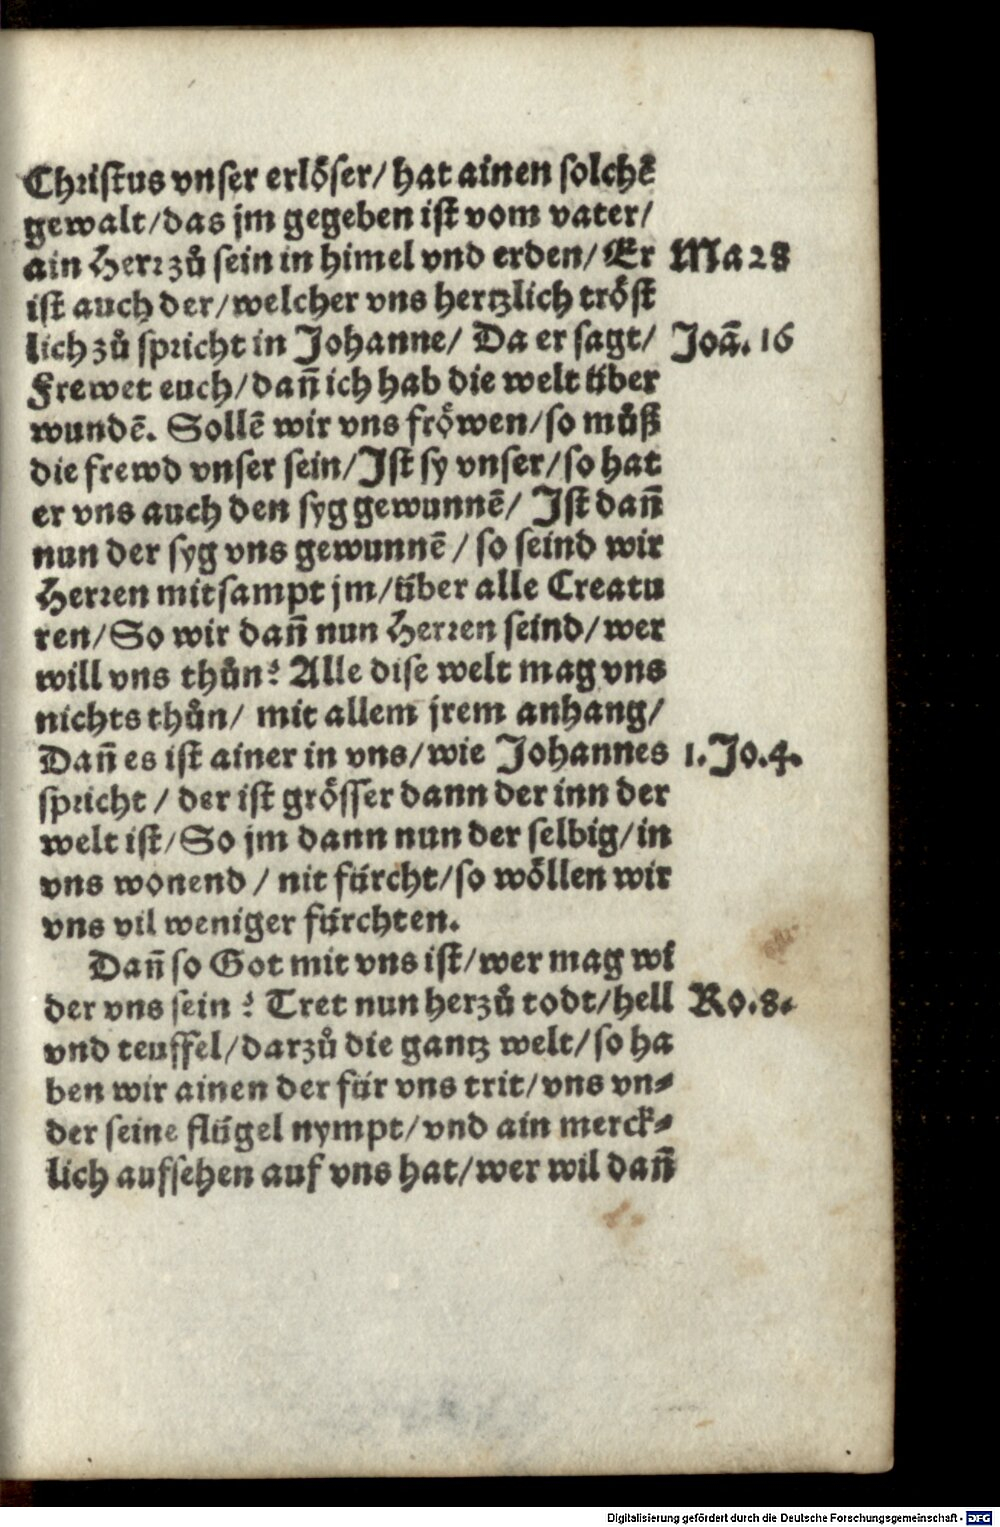 Christus vnser erlöser/ hat ainen solchē
gewalt/das jm gegeben ist vom vater/
ain Herr zů sein in himel vnd erden/ Er Ma 28
ist auch der/welcher vns hertzlich tröst
lich zů spricht in Johanne/ Da er sagt/ Joã. 16
Frewet euch/dañ ich hab die welt über
wundē. Sollē wir vns fröwen/so můß
die frewd vnser sein/Ist sy vnser/so hat
er vns auch den syg gewunnē/ Ist dañ
nun der syg vns gewunnē / so seind wir
Herren mitsampt jm/über alle Creatu
ren/So wir dañ nun Herren seind/wer
will vns thůn? Alle dise welt mag vns
nichts thůn/ mit allem jrem anhang/
Dañ es ist ainer in vns/wie Johannes 1. Jo. 4.
spricht / der ist grösser dann der inn der
welt ist/So jm dann nun der selbig/in
vns wonend / nit fürcht/so wöllen wir
vns vil weniger fürchten.
Dañ so Got mit vns ist/wer mag wi
der vns sein ? Tret nun herzů todt/hell Ro. 8.
vnd teuffel/darzů die gantz welt/so ha
ben wir ainen der für vns trit/vns vn⸗
der seine flügel nympt/vnd ain merck⸗
lich aufsehen auf vns hat/wer wil dañ
Digitalisierung gefördert durch die Deutsche Forschungsgemeinschaft - DFG